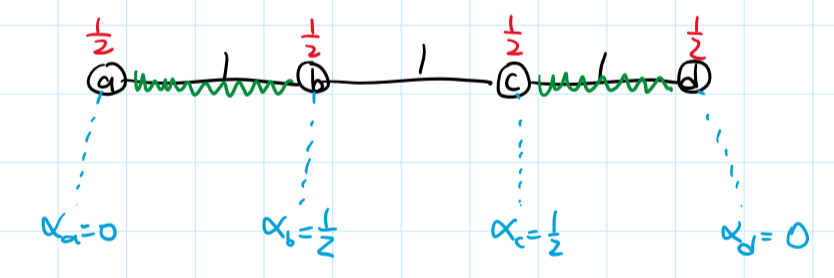 1/2 1/2 1/2 1/2
a 1 b 1 c 1 d
αₐ=0 α_b=1/2 α_c=1/2 α_d=0